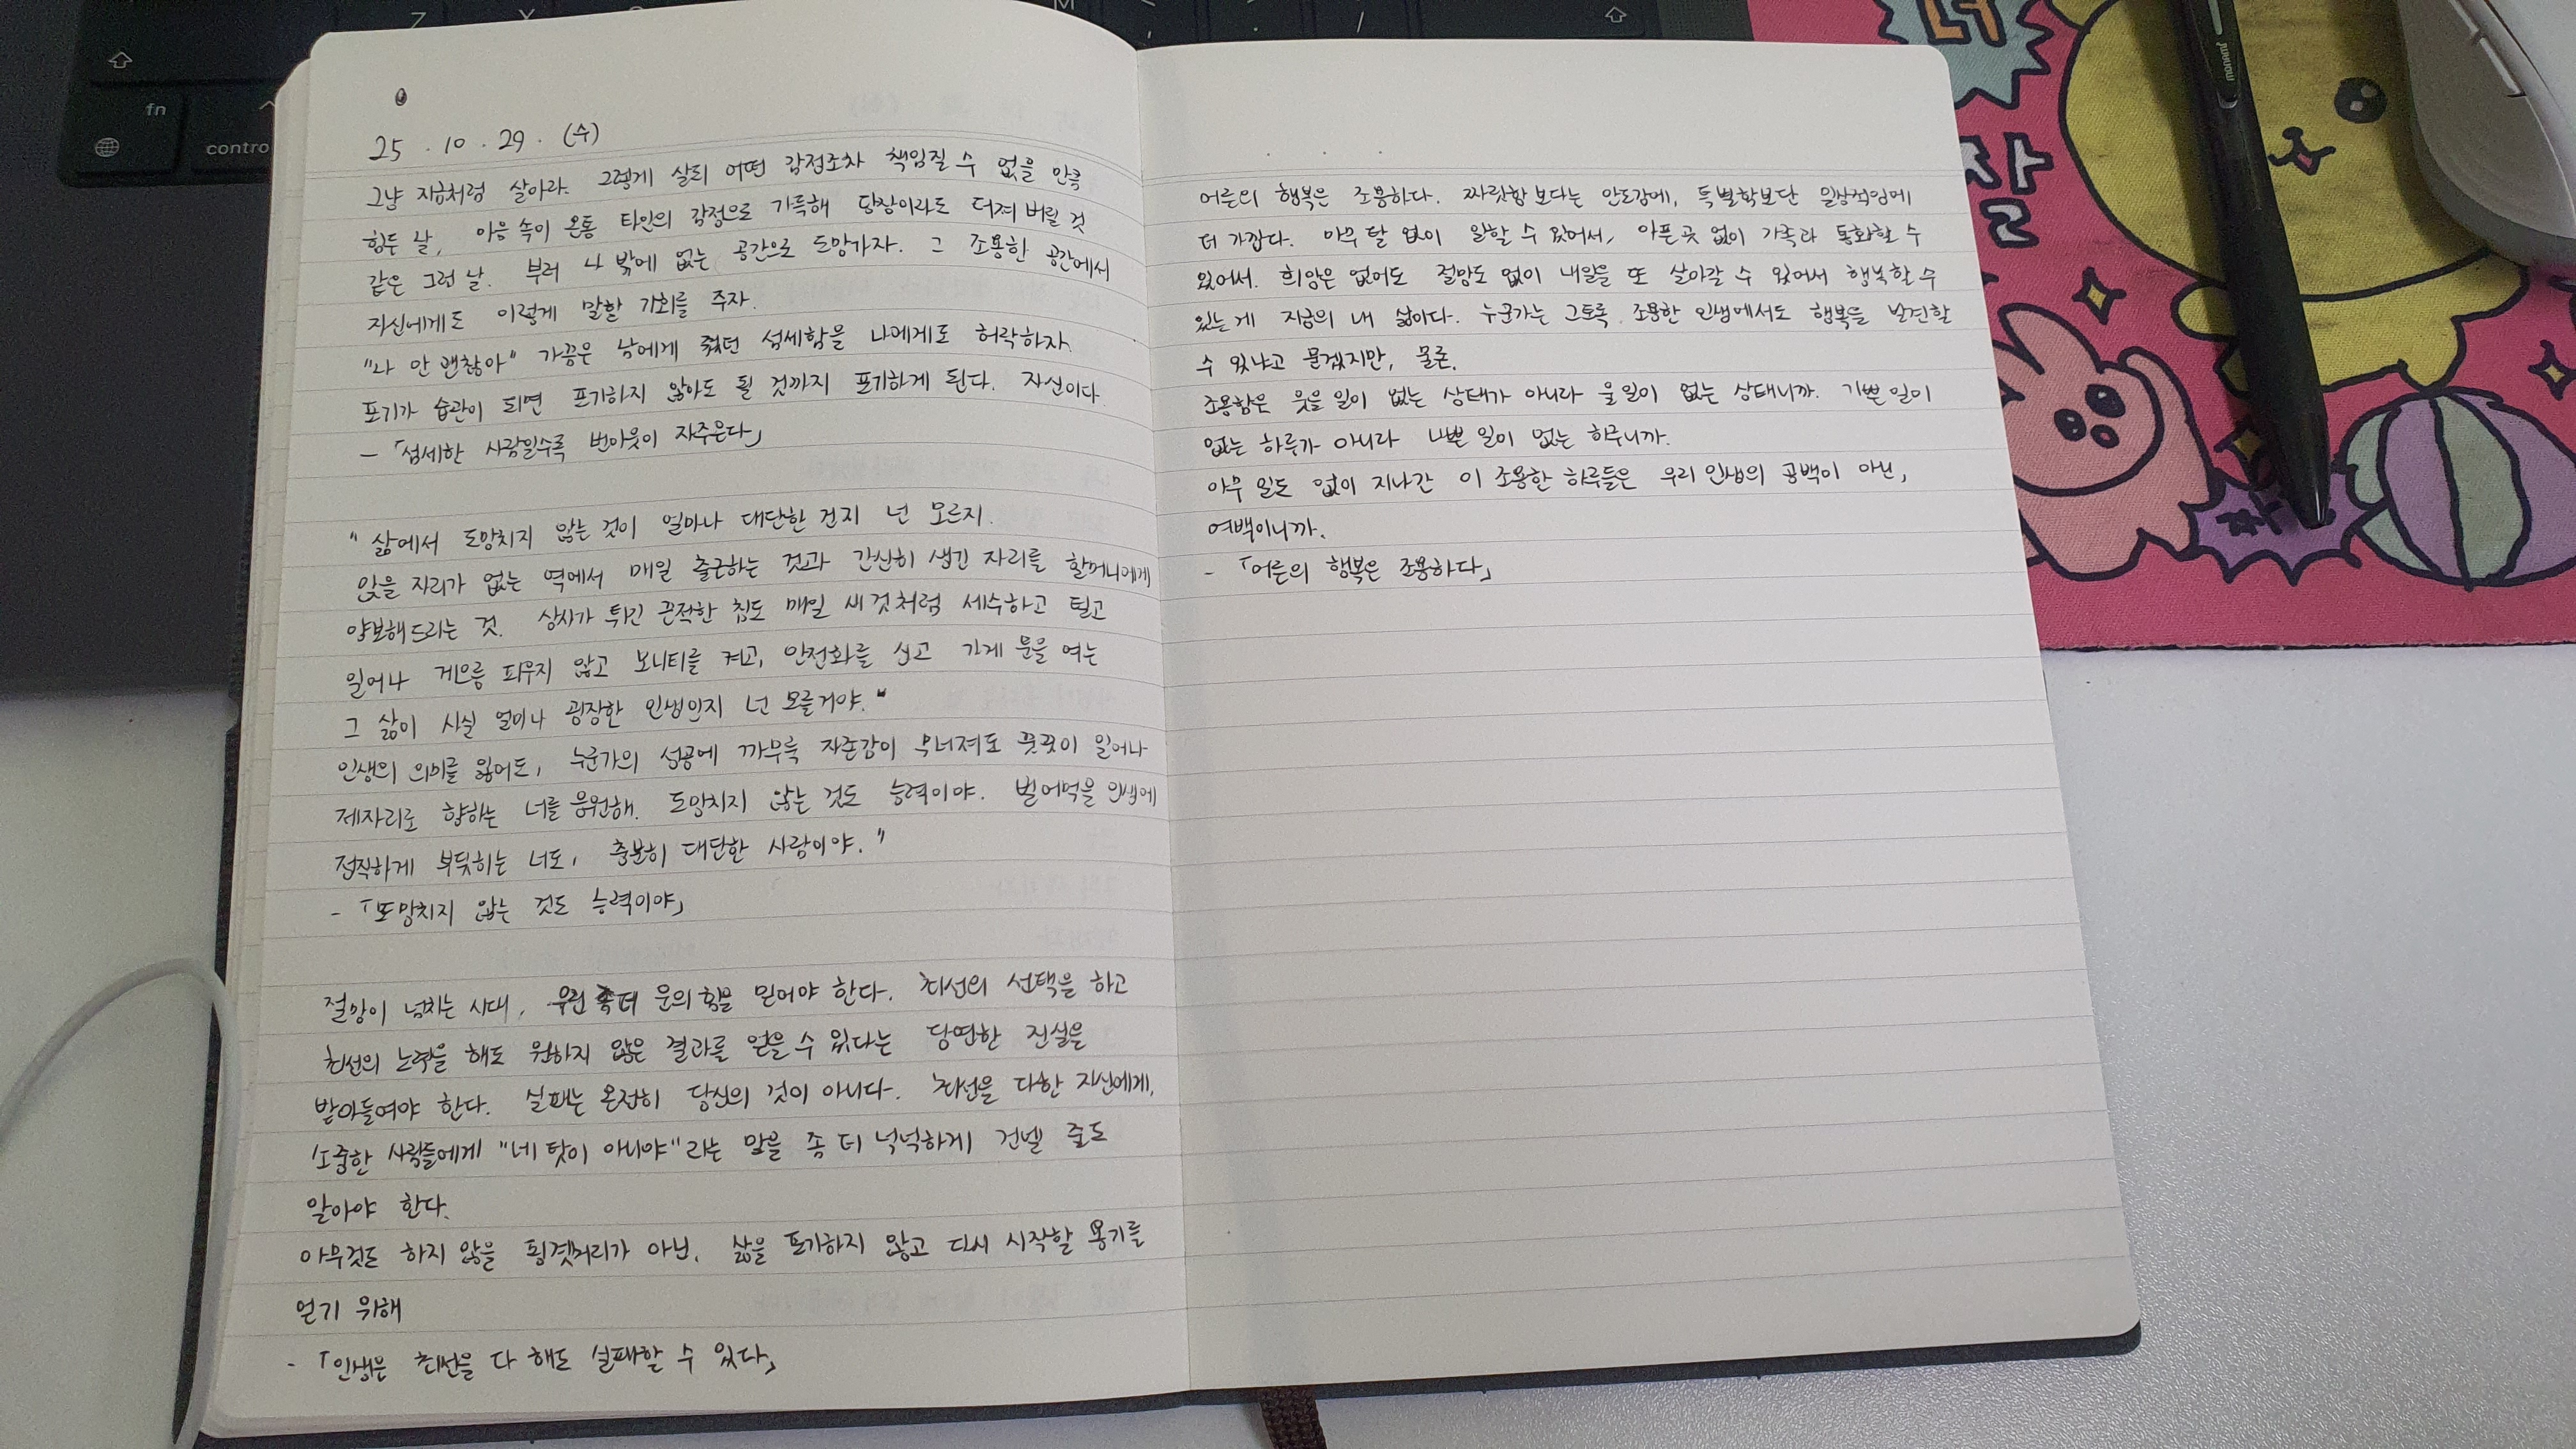 25 . 10 . 29 . (수)
그냥 지금처럼 살아라. 그렇게 살되 어떤 감정조차 책임질 수 없을 만큼
힘든 날, 마음 속이 온통 타인의 감정으로 가득해 당장이라도 터져 버릴 것
같은 그런 날. 부러 나 밖에 없는 공간으로 도망가자. 그 조용한 공간에서
자신에게도 이렇게 말할 기회를 주자.
"나 안 괜찮아" 가끔은 남에게 줬던 섬세함을 나에게도 허락하자.
포기가 습관이 되면 포기하지 않아도 될 것까지 포기하게 된다. 자신이다.
- 「섬세한 사람일수록 번아웃이 자주온다」
" 삶에서 도망치지 않는 것이 얼마나 대단한 건지 넌 모르지.
앉을 자리가 없는 역에서 매일 출근하는 것과 간신히 생긴 자리를 할머니에게
양보해드리는 것. 상사가 튀긴 끈적한 침도 매일 새것처럼 세수하고 털고
일어나 게으름 피우지 않고 모니터를 켜고, 안전화를 신고 가게 문을 여는
그 삶이 사실 얼마나 굉장한 인생인지 넌 모를거야."
인생의 의미를 잃어도, 누군가의 성공에 까무룩 자존감이 무너져도 꿋꿋이 일어나
제자리로 향하는 너를 응원해. 도망치지 않는 것도 능력이야. 벌어먹을 인생에
정직하게 부딪히는 너도, 충분히 대단한 사람이야."
- 「도망치지 않는 것도 능력이야」
절망이 넘치는 시대, 우린 좀더 운의 힘을 믿어야 한다. 최선의 선택을 하고
최선의 노력을 해도 원하지 않은 결과를 얻을 수 있다는 당연한 진실을
받아들여야 한다. 실패는 온전히 당신의 것이 아니다. 최선을 다한 자신에게,
소중한 사람들에게 "네 탓이 아니야"라는 말을 좀 더 넉넉하게 건넬 줄도
알아야 한다.
아무것도 하지 않을 핑곗거리가 아닌, 삶을 포기하지 않고 다시 시작할 용기를
얻기 위해
- 「인생은 최선을 다 해도 실패할 수 있다」
어른의 행복은 조용하다. 짜릿함보다는 안도감에, 특별함보단 일상적임에
더 가깝다. 아무 탈 없이 일할 수 있어서, 아픈 곳 없이 가족과 통화할 수
있어서. 희망은 없어도 절망도 없이 내일을 또 살아갈 수 있어서 행복할 수
있는 게 지금의 내 삶이다. 누군가는 그토록 조용한 인생에서도 행복을 발견할
수 있냐고 묻겠지만, 물론.
조용함은 웃을 일이 없는 상태가 아니라 울 일이 없는 상태니까. 기쁜 일이
없는 하루가 아니라 나쁜 일이 없는 하루니까.
아무 일도 없이 지나간 이 조용한 하루들은 우리 인생의 공백이 아닌,
여백이니까.
- 「어른의 행복은 조용하다」
fn
control
Z
X
M
너
잘